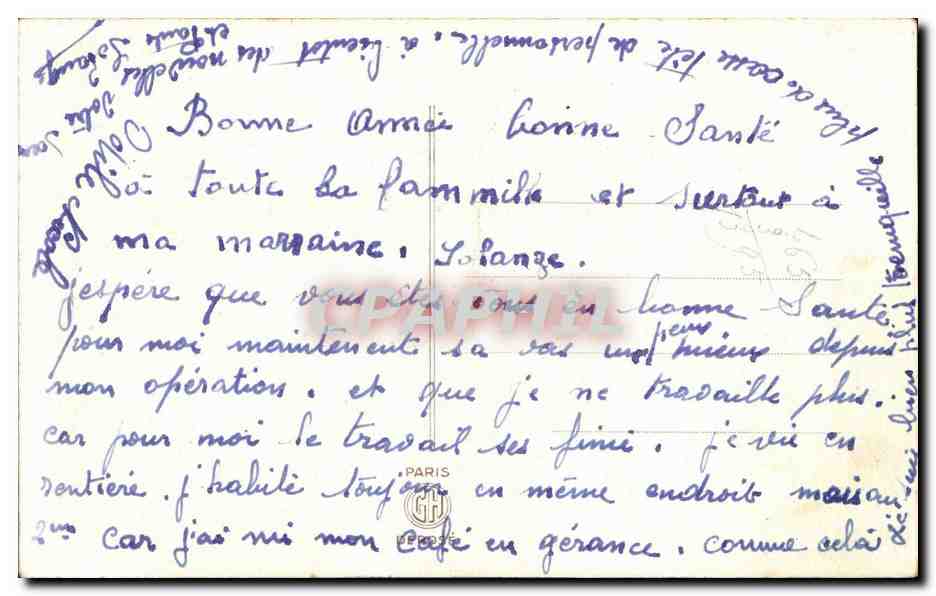 Bonne année bonne Santé
à toute la fammille et surtout à
ma marraine. Solange.
j'espère que vous êtes tous en bonne Santé.
pour moi maintenent sa vas un peux mieux depuis
mon opération. et que je ne travaille plus.
car pour moi le travail ses finie. je vie en
rentière. j'habite toujour en même endroit mais au
2em car j'ai mi mon café en gérance. comme celà
bien plus tranquille
plus de casse tête de personnelle. à bientot des nouvelles
CPAPHIL
PARIS
GH
DEPOSÉ